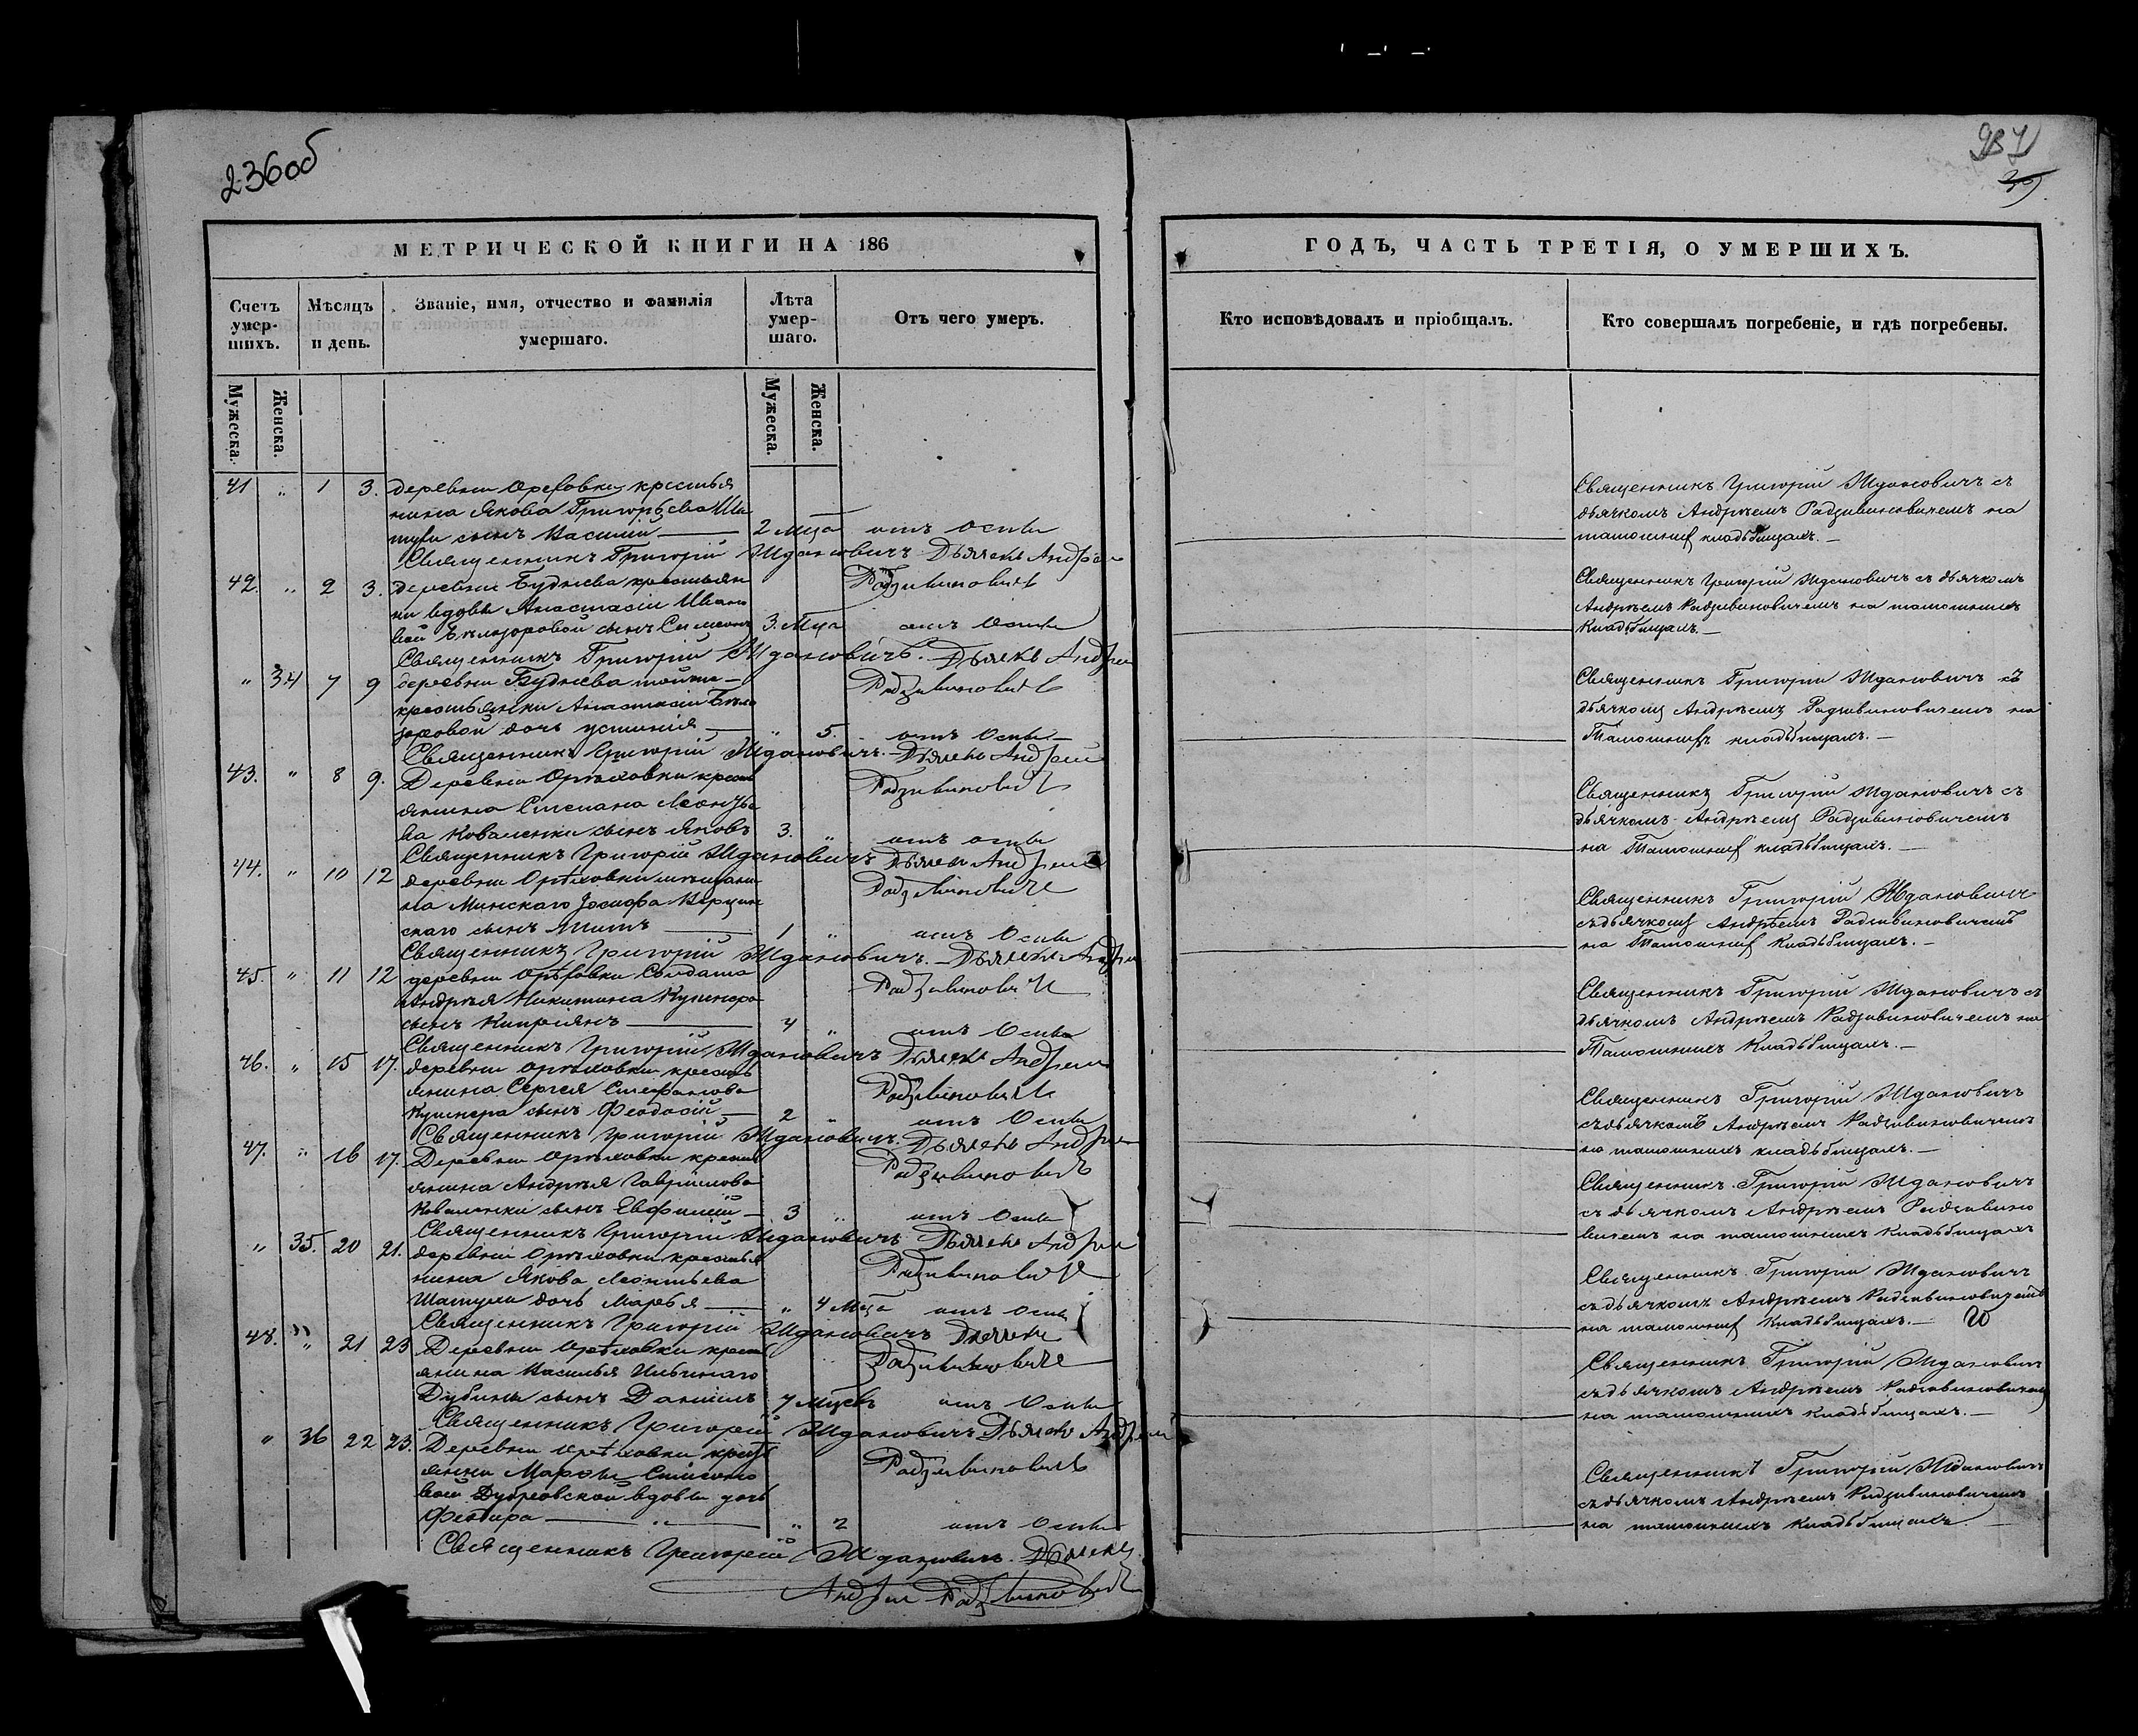 236об
237
МЕТРИЧЕСКОЙ КНИГИ НА 186
ГОДЪ, ЧАСТЬ ТРЕТІЯ, О УМЕРШИХЪ.
Счетъ умер-шихъ.
Мѣсяцъ и день.
Званіе, имя, отчество и фамилія умершаго.
Лѣта умер-шаго.
Отъ чего умеръ.
Кто исповѣдовалъ и пріобщалъ.
Кто совершалъ погребеніе, и гдѣ погребены.
Мужеска.
Женска.
Мужеска.
Женска.
41 " 1 3. деревни Ореховки крестья
нина Якова Григорьева Ша
тули сынъ Василій — 2 мца отъ Оспы
Священникъ Григорій Ждановичъ Дьячекъ Андрей
Радзивиновичъ
Священникъ Григорій Ждановичъ съ
дьячкомъ Андреемъ Радзивиновичемъ на
тамошних кладбищахъ. —
42. " 2 3. деревни Буднева крестьян
ки вдовы Анастасіи Ивано
вой Белозоровой сынъ Симеонъ 3. мца отъ Оспы
Священникъ Григорій Ждановичъ. Дьячекъ Андрей
Радзивиновичъ
Священникъ Григорій Ждановичъ съ дьячкомъ
Андреемъ Радзивиновичемъ на тамошнихъ
кладбищахъ. —
" 34 7 9 деревни Буднева тойже —
крестьянки Анастасіи Бело
зоровой дочь Устинія — " 5. отъ Оспы —
Священникъ Григорій Ждановичъ. Дьячекъ Андрей
Радзивиновичъ
Священникъ Григорій Ждановичъ съ
дьячкомъ Андреемъ Радзивиновичемъ на
Тамошнихъ кладбищахъ. —
43. " 8 9. Деревни Орѣховки кресть
янина Степана Леонтье
ва Коваленки сынъ Яковъ 3. " отъ оспы
Священникъ Григорій Ждановичъ Дьячекъ Андрей
Радзивиновичъ
Священникъ Григорій Ждановичъ съ
дьячкомъ Андреемъ Радзивиновичемъ
на Тамошних кладбищахъ. —
44. " 10 12 деревни Орѣховки мещани
на Минскаго Іосифа
скаго сынъ Титъ — 1 " отъ Оспы
Священникъ Григорій Ждановичъ. — Дьячекъ Андрей
Радзивиновичъ
Священникъ Григорій Ждановичъ
съ дьячкомъ Андрѣемъ Радзивиновичемъ
на Тамошних кладбищахъ. —
45. " 11 12 деревни Орѣховки Солдата
Андрея Никитина Кушнера
сынъ Кипріянъ — 4 " отъ Оспы
Священникъ Григорій Ждановичъ Дьячекъ Андрей
Радзивиновичъ
Священникъ Григорій Ждановичъ съ
дьячкомъ Андреемъ Радзивиновичемъ на
Тамошнихъ кладбищахъ. —
46. " 15 17. деревни Орѣховки кресть
янина Сергея Стефанова
Кушнера сынъ Феодосій — 2 " отъ Оспы
Священникъ Григорій Ждановичъ. Дьячекъ Андрей
Радзивиновичъ
Священникъ Григорій Ждановичъ
съ дьячкомъ Андреемъ Радзивиновичемъ
на тамошнихъ кладбищахъ. —
47. " 16 17. Деревни Орѣховки кресть
янина Андрея Гаврилова
Коваленки сынъ Евфимій — 3 " отъ Оспы
Священникъ Григорій Ждановичъ Дьячекъ Андрей
Радзивиновичъ
Священникъ Григорій Ждановичъ
съ дьячкомъ Андреемъ Радзивино
вичемъ на тамошнихъ кладбищахъ
" 35. 20 21. деревни Орѣховки крестья
нина Якова Леонтьева
Шатули дочь Марья — " 4 мца отъ Оспы
Священникъ Григорій Ждановичъ Дьячекъ
Радзивиновичъ
Священникъ Григорій Ждановичъ
съ дьячкомъ Андреемъ Радзивиновичемъ
на тамошних кладбищахъ. —
48. " 21 23 Деревни Орѣховки кресть
янина Василья
Дубины сынъ Даніилъ 7 мцевъ отъ Оспы
Священникъ Григорій Ждановичъ Дьячекъ Андрей
Радзивиновичъ
Священникъ Григорій Ждановичъ
съ дьячкомъ Андреемъ Радзивиновичемъ
на тамошнихъ кладбищахъ. —
" 36 22 23. Деревни Орѣховки крест
янки Марфы
вой Дубровской вдовы дочь
— " — " 2 отъ Оспы
Священникъ Григорій Ждановичъ. Дьячекъ
Андрей Радзивиновичъ
Священникъ Григорій Ждановичъ
съ дьячкомъ Андреемъ Радзивиновичемъ
на тамошнихъ кладбищахъ. —